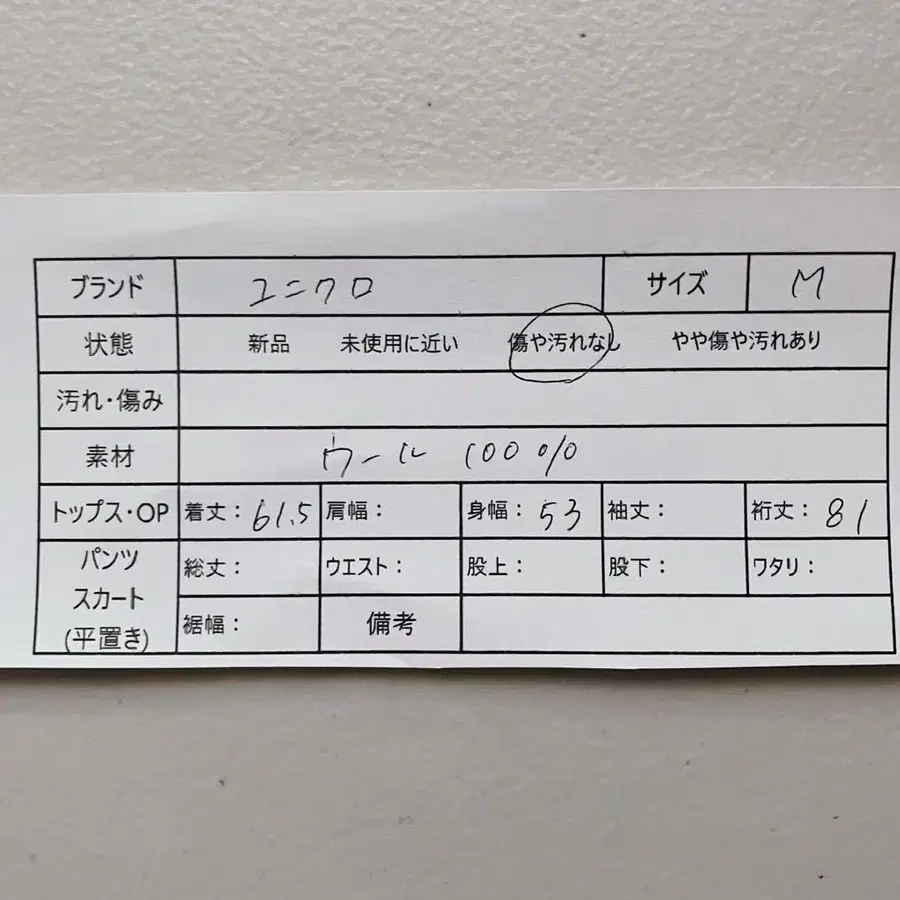 ブランド ユニクロ サイズ M
状態 新品 未使用に近い 傷や汚れなし やや傷や汚れあり
汚れ・傷み
素材 ウール 100%
トップス・OP 着丈：61.5 肩幅： 身幅：53 袖丈： 裄丈：81
パンツ
スカート
(平置き)
総丈： ウエスト： 股上： 股下： ワタリ：
裾幅： 備考